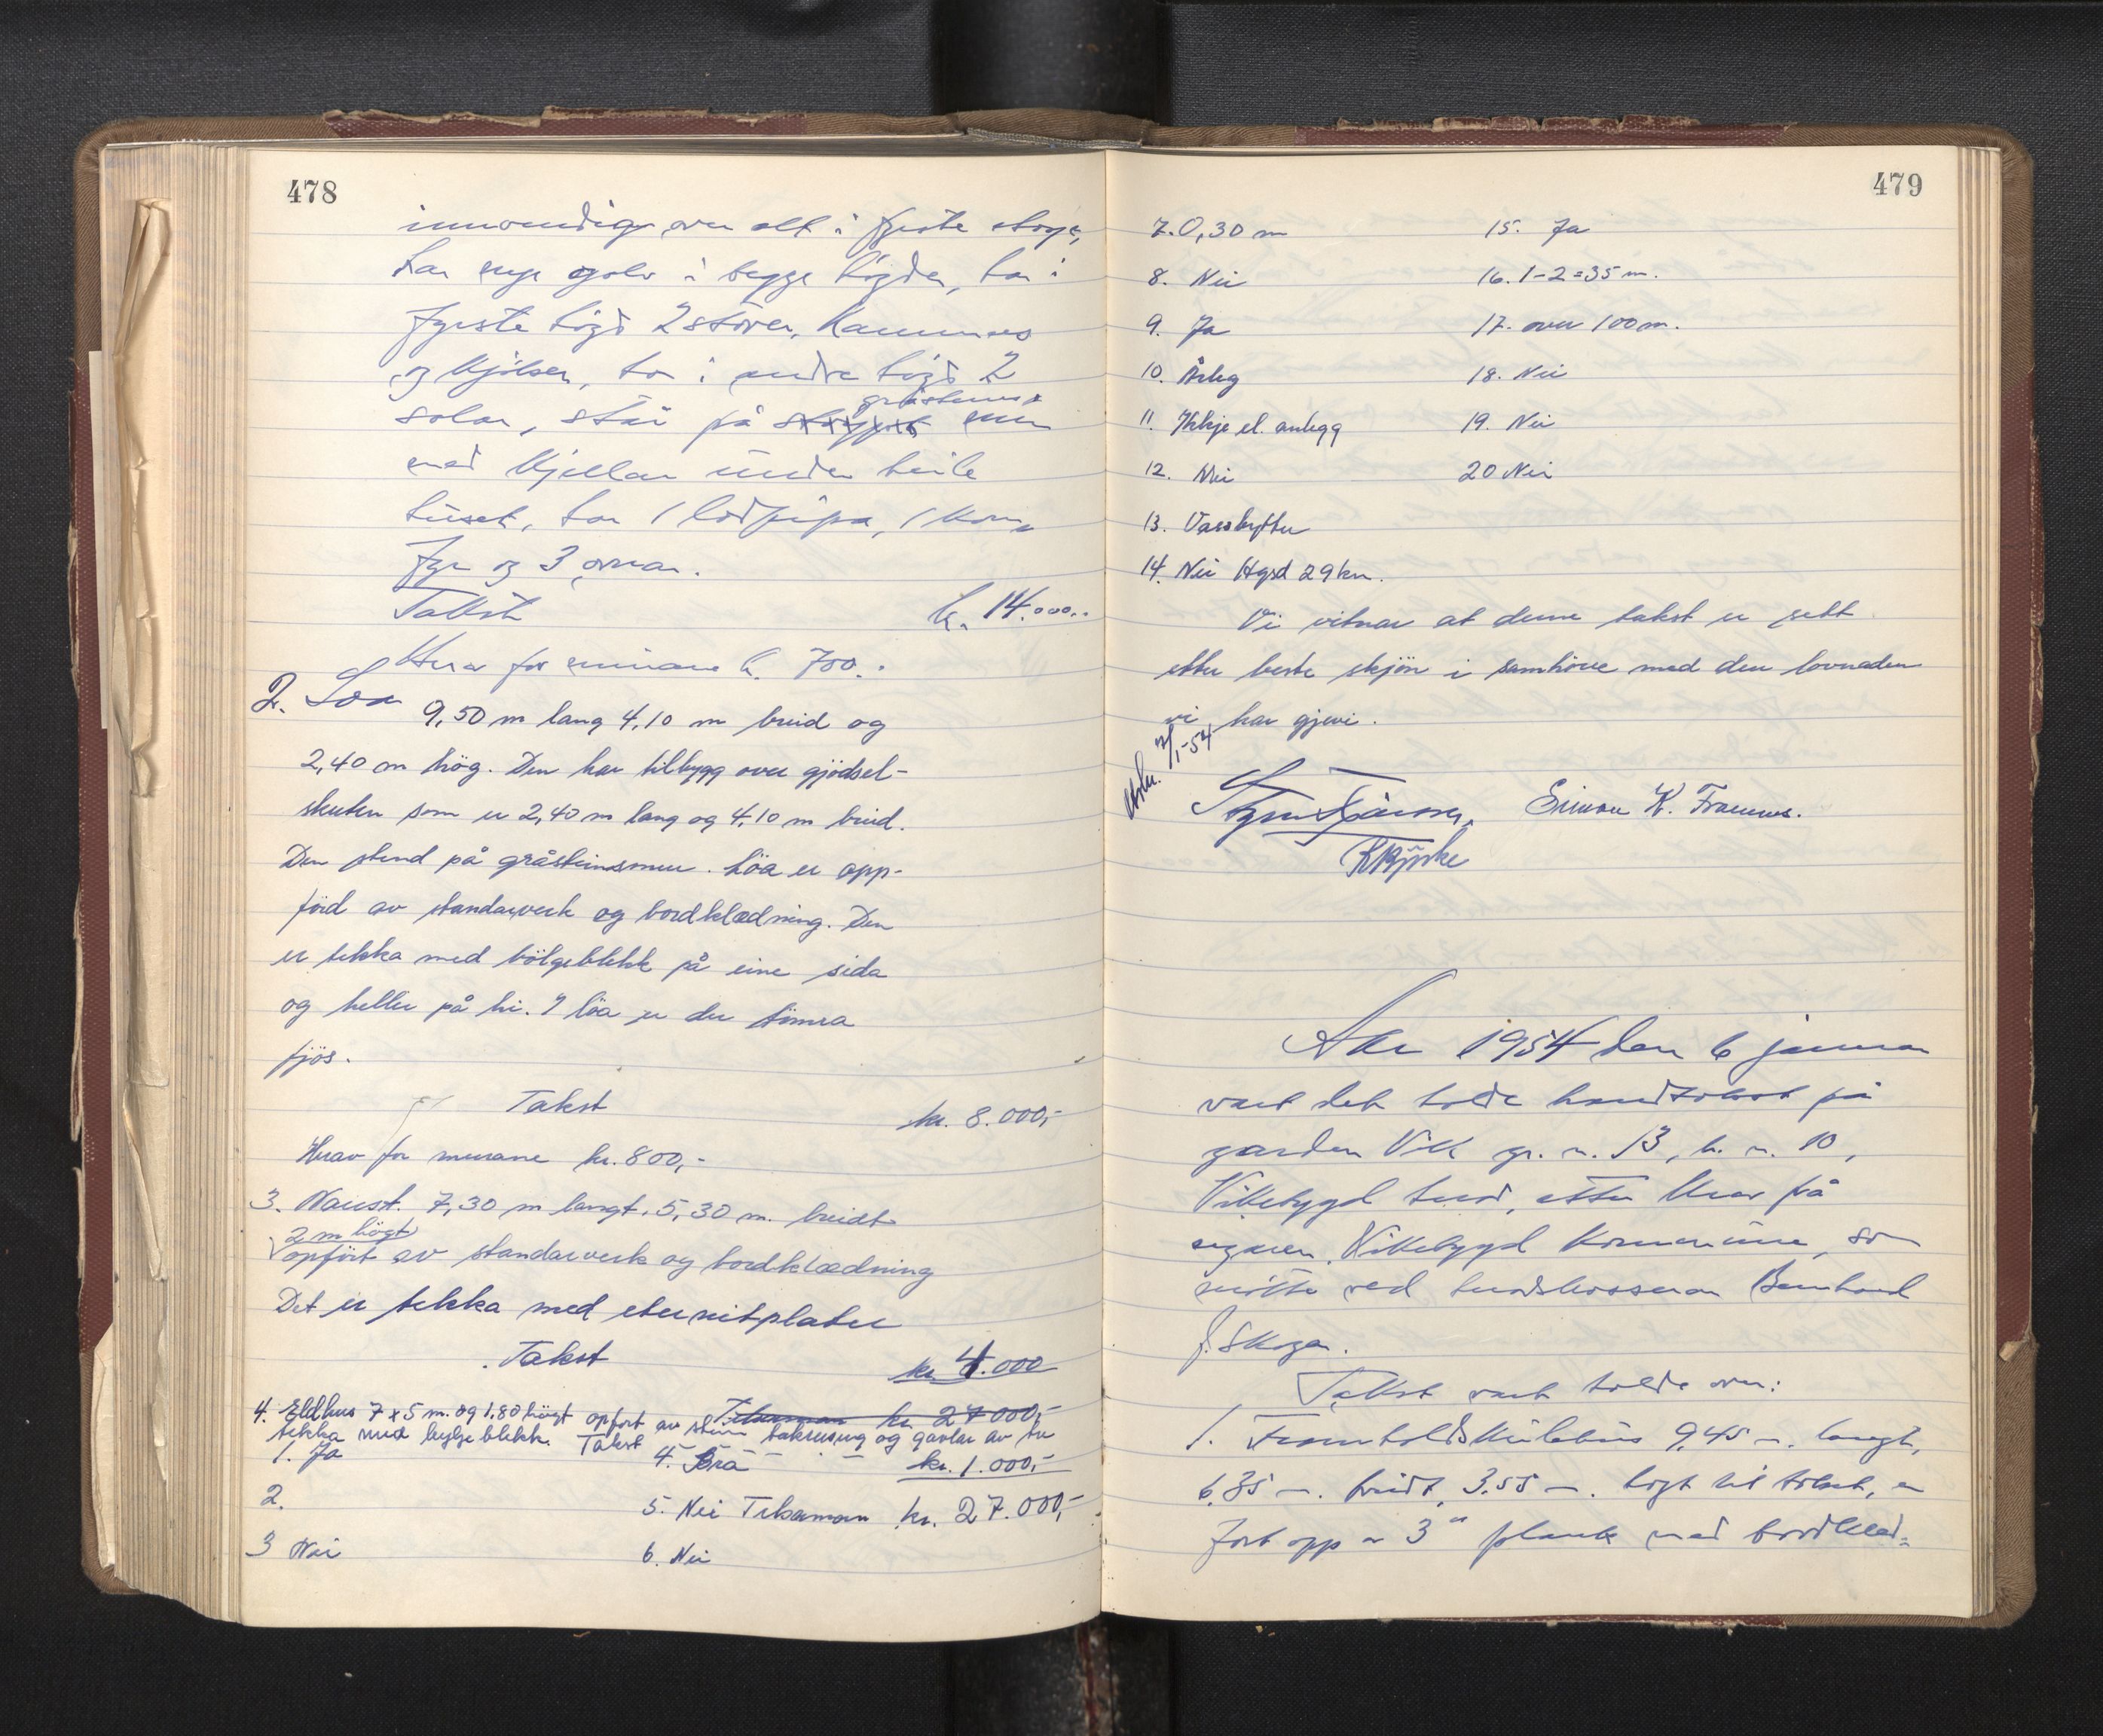 478
innvendig over alt i fyrste etage,
har nye golv i begge högder, har i
fyrste högd 2 stover, kammers
og kjöken, har i andre högd 2
gråsteins
solar, står på støypt mur
med kjellar under heile
huset, har 1 lodpipa, 1 kom
fyr og 3 omnar.
Takst kr. 14.000.-
Herav for murane kr. 700.-
2. Löa 9,50 m lang 4,10 m breid og
2,40 m hög. Den har tilbygg over gjödsel-
skuten som er 2,40 m lang og 4,10 m breid.
Den stend på gråsteinsmur. Löa er opp-
förd av standarverk og bordklædning. Den
er tekka med bölgeblekk på eine sida
og heller på hi. I löa er der tömra
fjös.
Takst kr. 8.000,-
Herav for murane kr. 800,-
3. Naust. 7,30 m langt, 5,30 m. breidt
2 m högt
opfört av standarverk og bordklædning
Det er tekka med eternitplater
Takst kr. 4.000
Tilsaman kr. 27000,-
4. Eldhus 7 x 5 m. og 1.80 högt opfört av stein takreising og gavlar av tre
tekka med bylgjeblekk. Takst kr. 1.000,-
1. Ja 4. Bra
2. 5. Nei Tilsaman kr. 27.000,-
3 Nei 6. Nei
479
7. 0,30 m 15. Ja
8. Nei 16. 1-2 = 35 m.
9. Ja 17. over 100 m.
10. Årleg 18. Nei
11. Ikkje el. anlegg 19. Nei
12. Nei 20 Nei
13. Vassbytter
14. Nei Hgsd 29 km.
Vi vitnar at denne takst er sett
etter beste skjön i samhöve med den lovnaden
vi har gjevi.
Simon K. Framnes.
Året 1954 den 6 januar
vart det halde brandtakst på
garden Vik gr. n. 13, br. n. 10,
Vikebygd herad, etter krav på
eigaren Vikebygd kommune, som
mötte ved heradskasserar Bernhard
J. Skoga.
Takst vart halde over:
1. Framhaldskulehus 9,45 m. langt,
6,35 m. breidt, 3,55 m. högt til taket, er
fört opp av 3" plank med bordklæd=